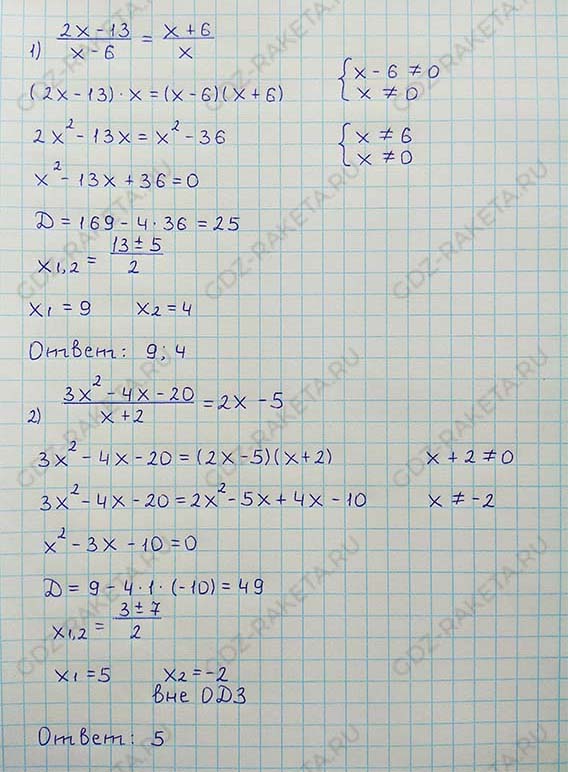 1) (2x-13)/(x-6) = (x+6)/x
{ x-6≠0
x≠0
(2x-13)·x=(x-6)(x+6)
2x²-13x=x²-36
{ x≠6
x≠0
x²-13x+36=0
D=169-4·36=25
x1,2 = (13±5)/2
x1=9 x2=4
Ответ: 9; 4
2) (3x²-4x-20)/(x+2) = 2x-5
3x²-4x-20=(2x-5)(x+2) x+2≠0
3x²-4x-20=2x²-5x+4x-10 x≠-2
x²-3x-10=0
D=9-4·1·(-10)=49
x1,2 = (3±7)/2
x1=5 x2=-2
вне ОДЗ
Ответ: 5
GDZ-RAKETA.RU